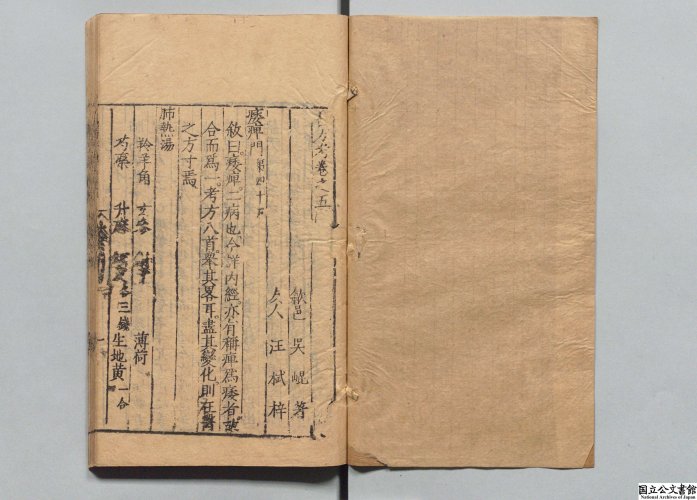 方考卷之五
歙邑 吳崐 著
友人 汪栻 梓
痿痺門第四十五
敘曰痿痺二病也今詳內經亦有稱痺為痿者故
合而為一考方八首舉其畧耳盡其變化則在醫
之方寸焉
肺熱湯
羚羊角 玄參 薄荷
芍藥 升麻 各三錢 生地黃一合
国立公文書館
National Archives of Japan